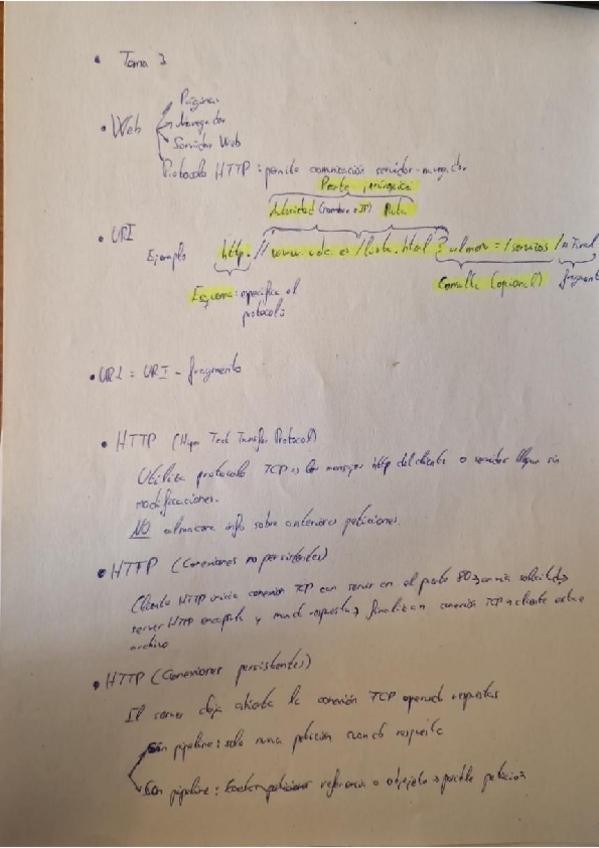 • Tema 3
• Web
Páginas
Navegador
Servidor Web
Protocolo HTTP : permite comunicación servidor-naveg.
Parte jerárquica
Autoridad (nombre o IP) Ruta
• URI
Ejemplo http://www.udc.es / .html ? / servizos /
Esquema: especifica el protocolo
Consulta (opcional) fragmento
• URL = URI - fragmento
• HTTP (Hyper Text Transfer Protocol)
Utiliza protocolo TCP los mensajes http del cliente o servidor llegan sin
modificaciones.
NO almacena info sobre anteriores peticiones.
• HTTP (Conexiones no persistentes)
Cliente HTTP inicia conexión TCP con server en el puerto 80 envía solicitud
server HTTP encapsula y manda respuesta finalizan conexión TCP cliente
archivo
• HTTP (Conexiones persistentes)
El server deja abierta la conexión TCP respuestas
Sin pipeline: solo nueva petición cuando respuesta
Con pipeline: referencia a objeto petición